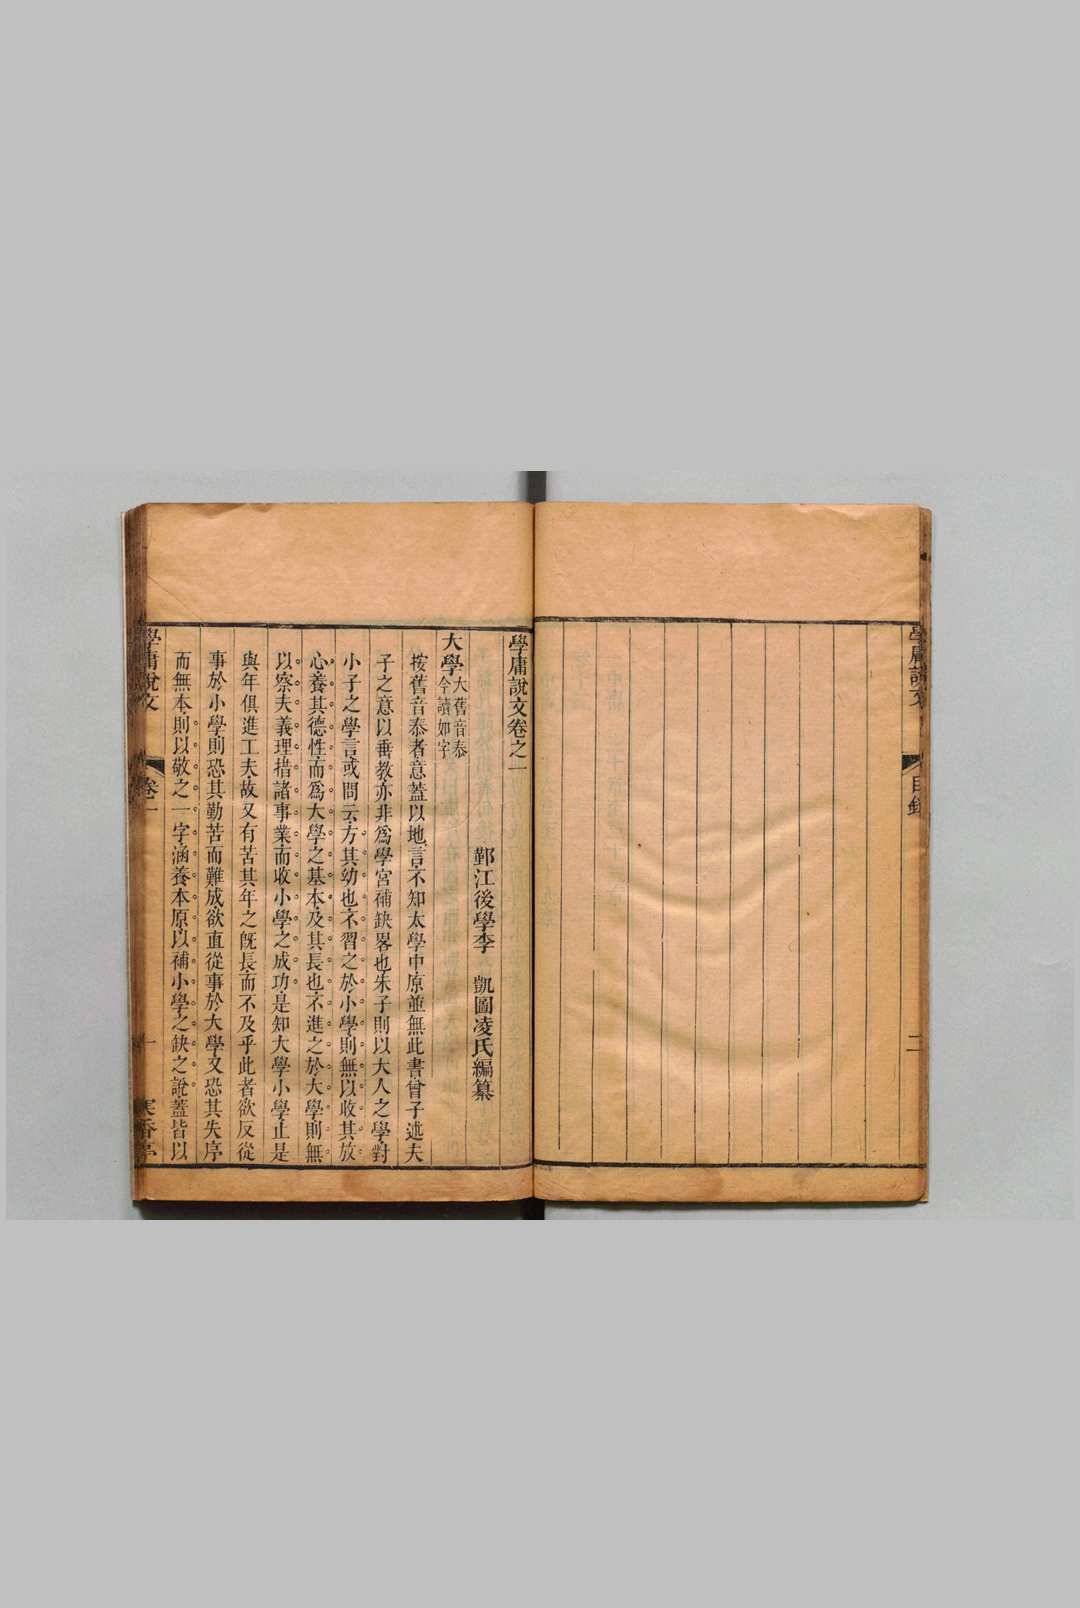 學庸說文
目錄
二
學庸說文卷之一
鄞江後學李 凱圖凌氏編纂
大學大舊音泰
今讀如字
按舊音泰者意蓋以地言不知太學中原並無此書曾子述夫
子之意以垂教亦非爲學宮補缺畧也朱子則以大人之學對
小子之學言或問云方其幼也不習之於小學則無以收其放
心養其德性而爲大學之基本及其長也不進之於大學則無
以察夫義理措諸事業而收小學之成功是知大學小學止是
與年俱進工夫故又有苦其年之旣長而不及乎此者欲反從
事於小學則恐其勤苦而難成欲直從事於大學又恐其失序
而無本則以敬之一字涵養本原以補小學之缺之說蓋皆以
學庸說文
卷一
一
香亭